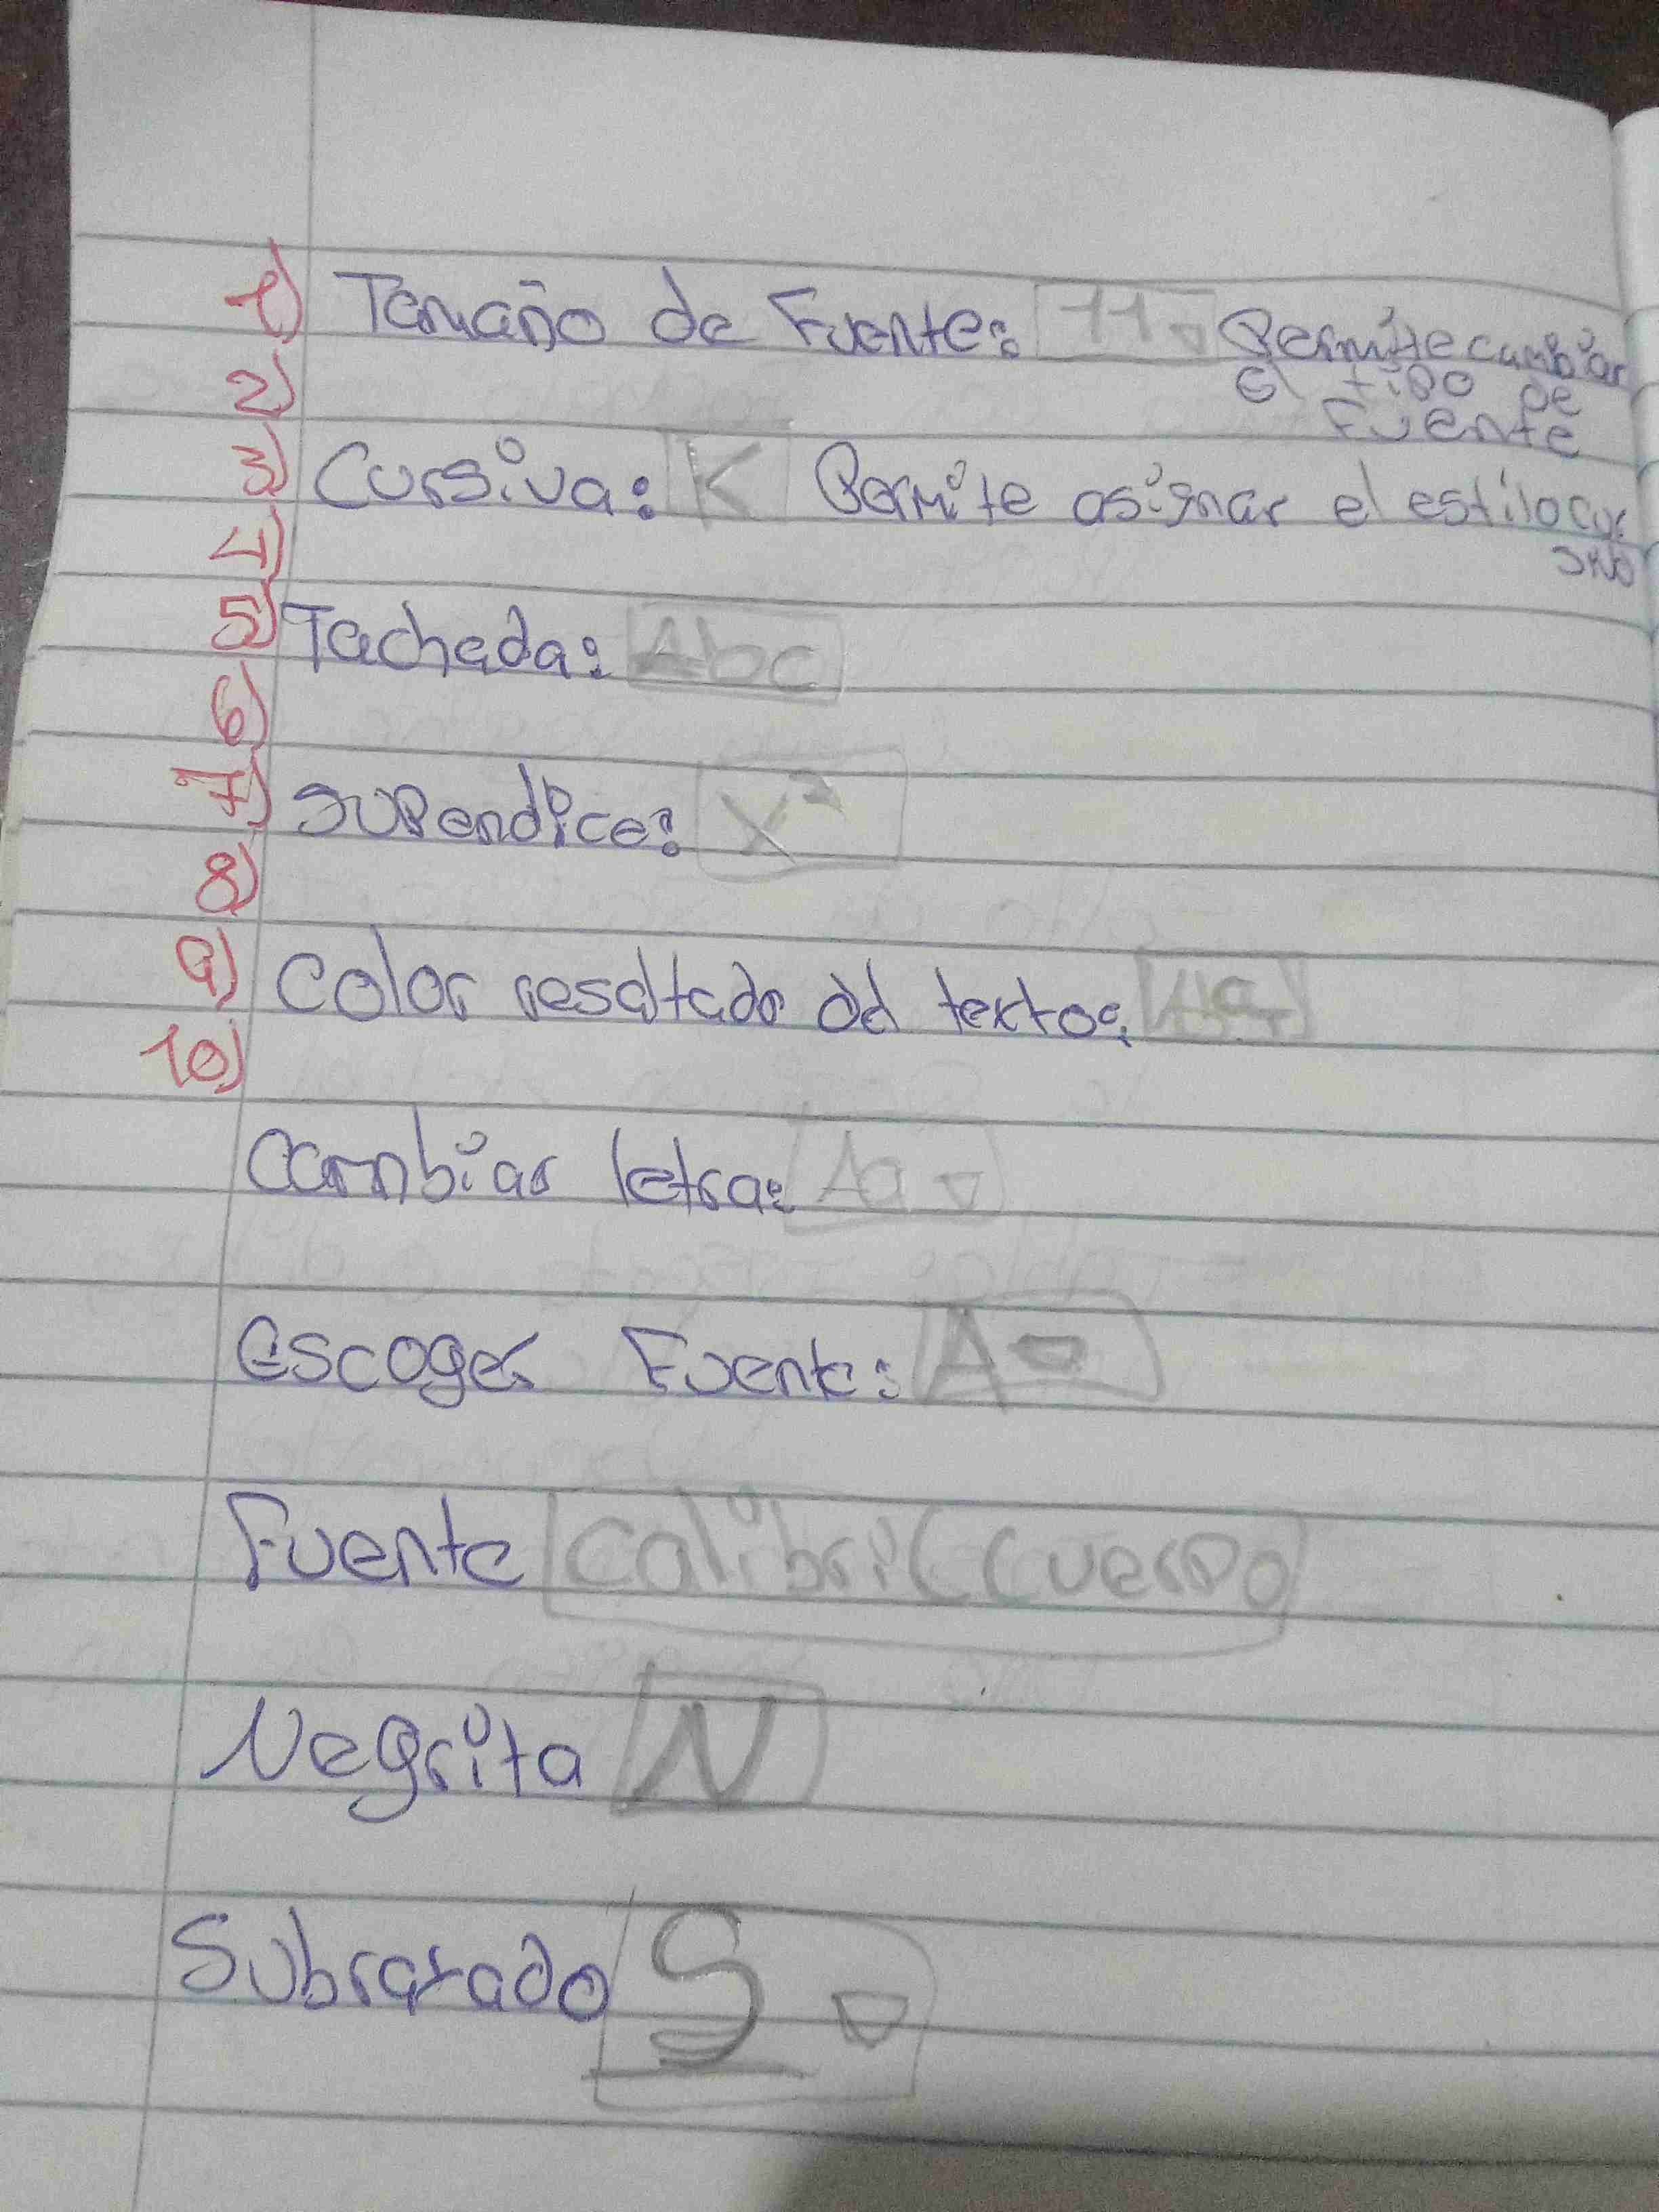 1) Tamaño de Fuente: 11 Permite cambiar
el tipo de
Fuente
2)
3) Cursiva: K Permite asignar el estilo cur
sivo
4)
5) Tachada: Abc
6)
7) Supendice: X²
8)
9) Color resaltado del texto:
10)
Cambiar letra: Aa
Escoger Fuente: A
Fuente Calibri (Cuerpo
Negrita N
Subrayado S